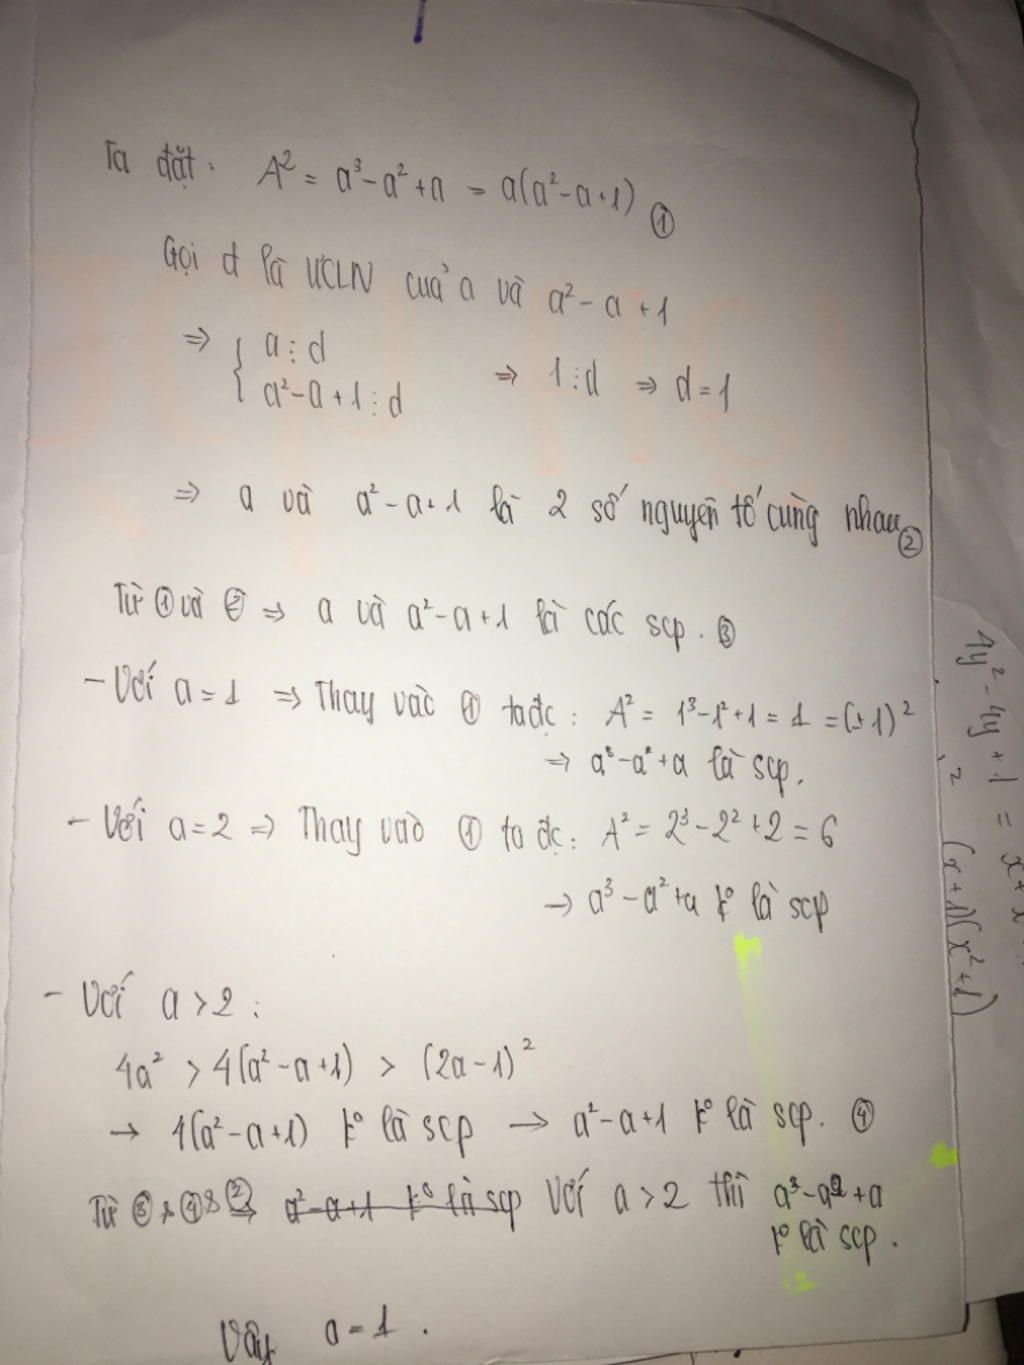 Ta đặt: A² = a³-a²+a = a(a²-a+1) ①
Gọi d là ƯCLN của a và a²-a+1
⇒ { a⋮d
a²-a+1⋮d ⇒ 1⋮d ⇒ d=1
⇒ a và a²-a+1 là 2 số nguyên tố cùng nhau ②
Từ ① và ② ⇒ a và a²-a+1 là các scp. ③
- Với a=1 ⇒ Thay vào ① ta đc: A² = 1³-1²+1 = 1 = (±1)²
⇒ a³-a²+a là scp.
- Với a=2 ⇒ Thay vào ① ta đc: A² = 2³-2²+2 = 6
→ a³-a²+a k° là scp
- Với a>2:
4a² > 4(a²-a+1) > (2a-1)²
→ 4(a²-a+1) k° là scp → a²-a+1 k° là scp. ④
Từ ③ & ④ & ② ⇒ a²-a+1 k° là scp Với a>2 thì a³-a²+a
k° là scp.
Vậy a=1.
4y²-4y+1 =
(x+1)(x²+1)